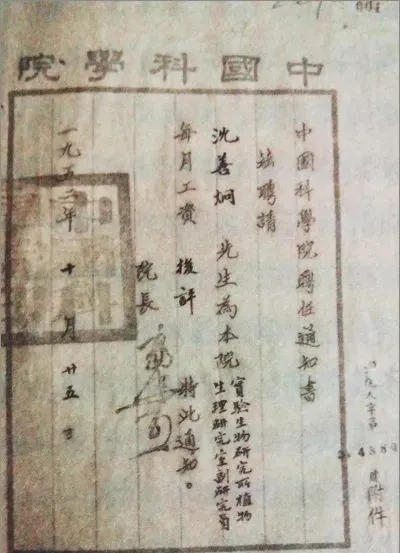 中國科學院
中國科學院聘任通知書
茲聘請
沈善炯 先生為本院實驗生物研究所植物
生理研究室副研究員
每月工資 後評 特此通知。
院長
一九五二年 十月 廿五日
附件